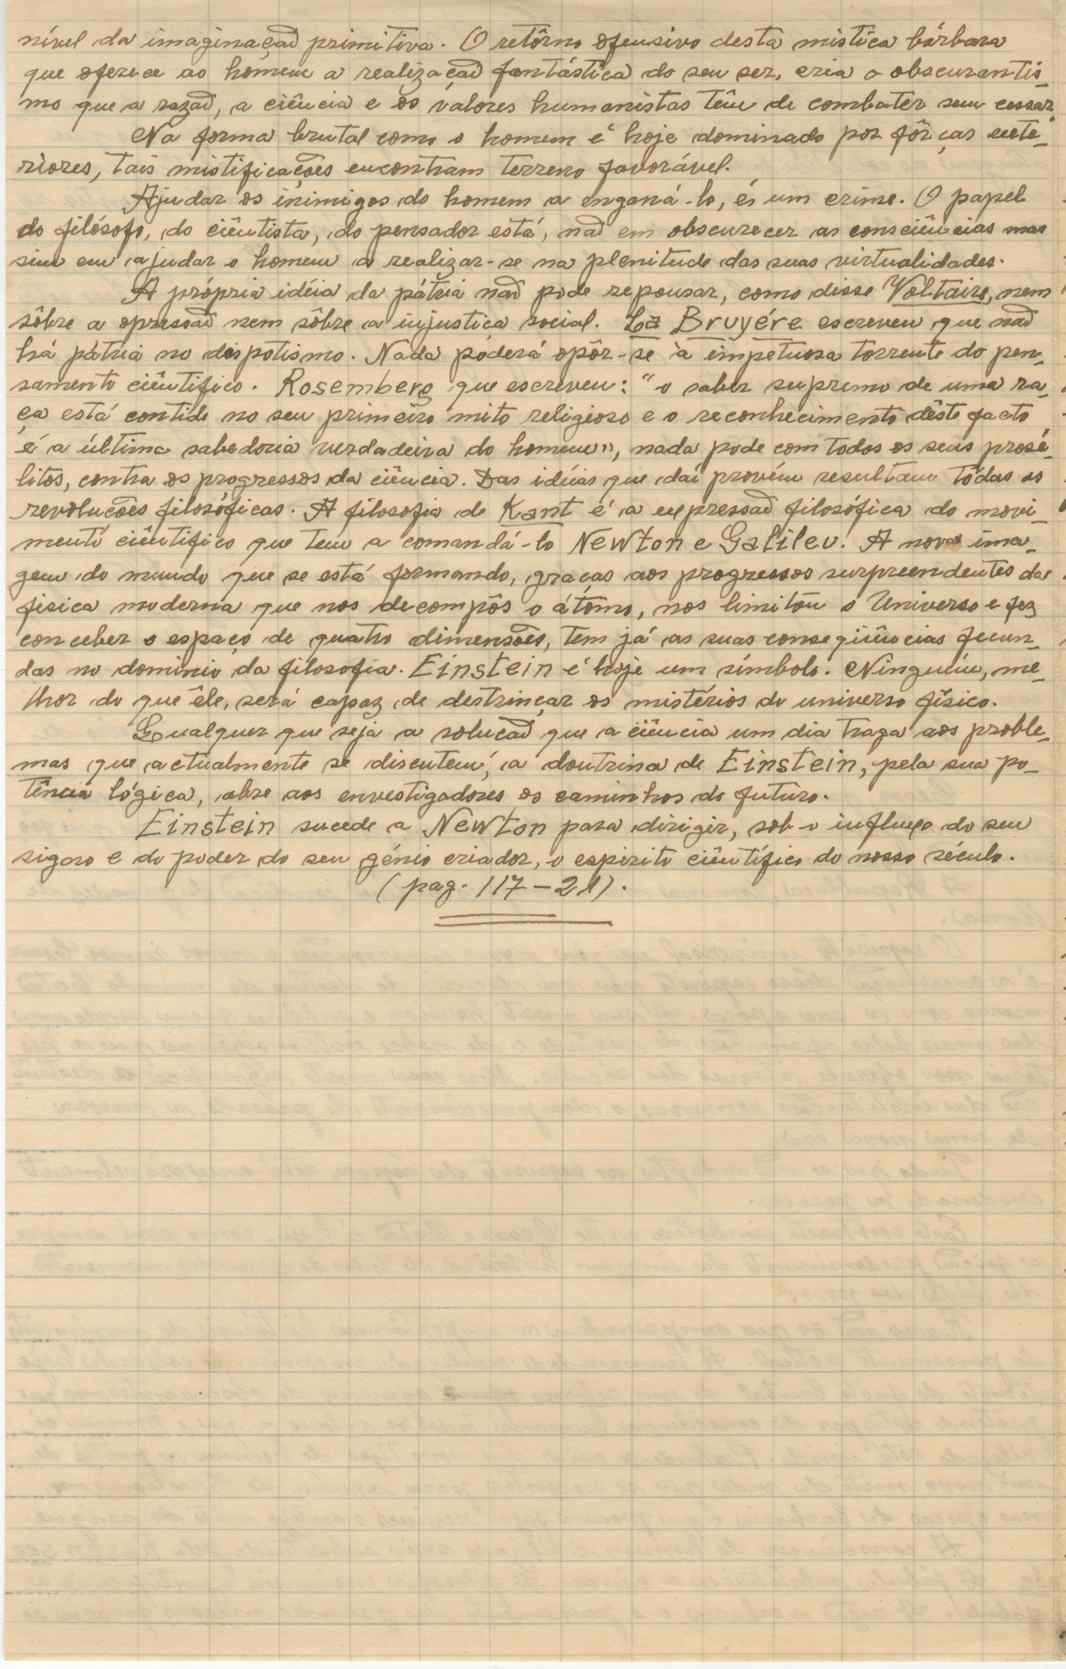 nível da imaginação primitiva. O retôrno ofensivo desta mistica bárbara
que oferece ao homem a realização fantástica do seu ser, cria o obscurantis-
mo que a razão, a ciência e os valores humanistas têm de combater sem cessar.
Na forma brutal como o homem é hoje dominado por fôrças exte-
riores, tais mistificações encontram terreno favorável.
Ajudar os inimigos do homem a enganá-lo, é um crime. O papel
do filósofo, do ciêntista, do pensador está, não em obscurecer as consciências mas
sim em ajudar o homem a realizar-se na plenitude das suas virtualidades.
A própria idéia da pátria não pode repousar, como disse Voltaire, nem
sôbre a opressão nem sôbre a injustiça social. La Bruyére escreveu que não
há pátria no despotismo. Nada poderá opôr-se à impetuosa torrente do pen-
samento ciêntifico. Rosemberg que escreveu: "o saber supremo de uma ra-
ça está contido no seu primeiro mito religioso e o reconhecimento dêste facto
é a última sabedoria verdadeira do homem", nada pode com todos os seus prosé-
litos, contra os progressos da ciência. Das idéias que daí provém resultam tôdas as
revoluções filosóficas. A filosofia de Kant é a expressão filosófica do movi-
mento ciêntifico que tem a comandá-lo Newton e Galileu. A nova ima-
gem do mundo que se está formando, graças aos progressos surpreendentes da
fisica moderna que nos decompôs o átomo, nos limitou o Universo e fez
conceber o espaço de quatro dimensões, tem já as suas conseqüências fecun-
das no dominio da filosofia. Einstein é hoje um símbolo. Ninguém, me-
lhor do que êle, será capaz de destrinçar os mistérios do universo físico.
Qualquer que seja a solução que a ciência um dia traga aos proble-
mas que actualmente se discutem, a doutrina de Einstein, pela sua po-
tência lógica, abre aos envestigadores os caminhos do futuro.
Einstein sucede a Newton para dirigir, sob o influxo do seu
rigoro e do poder do seu génio criador, o espirito ciêntífico do nosso século.
(pag. 117-21).